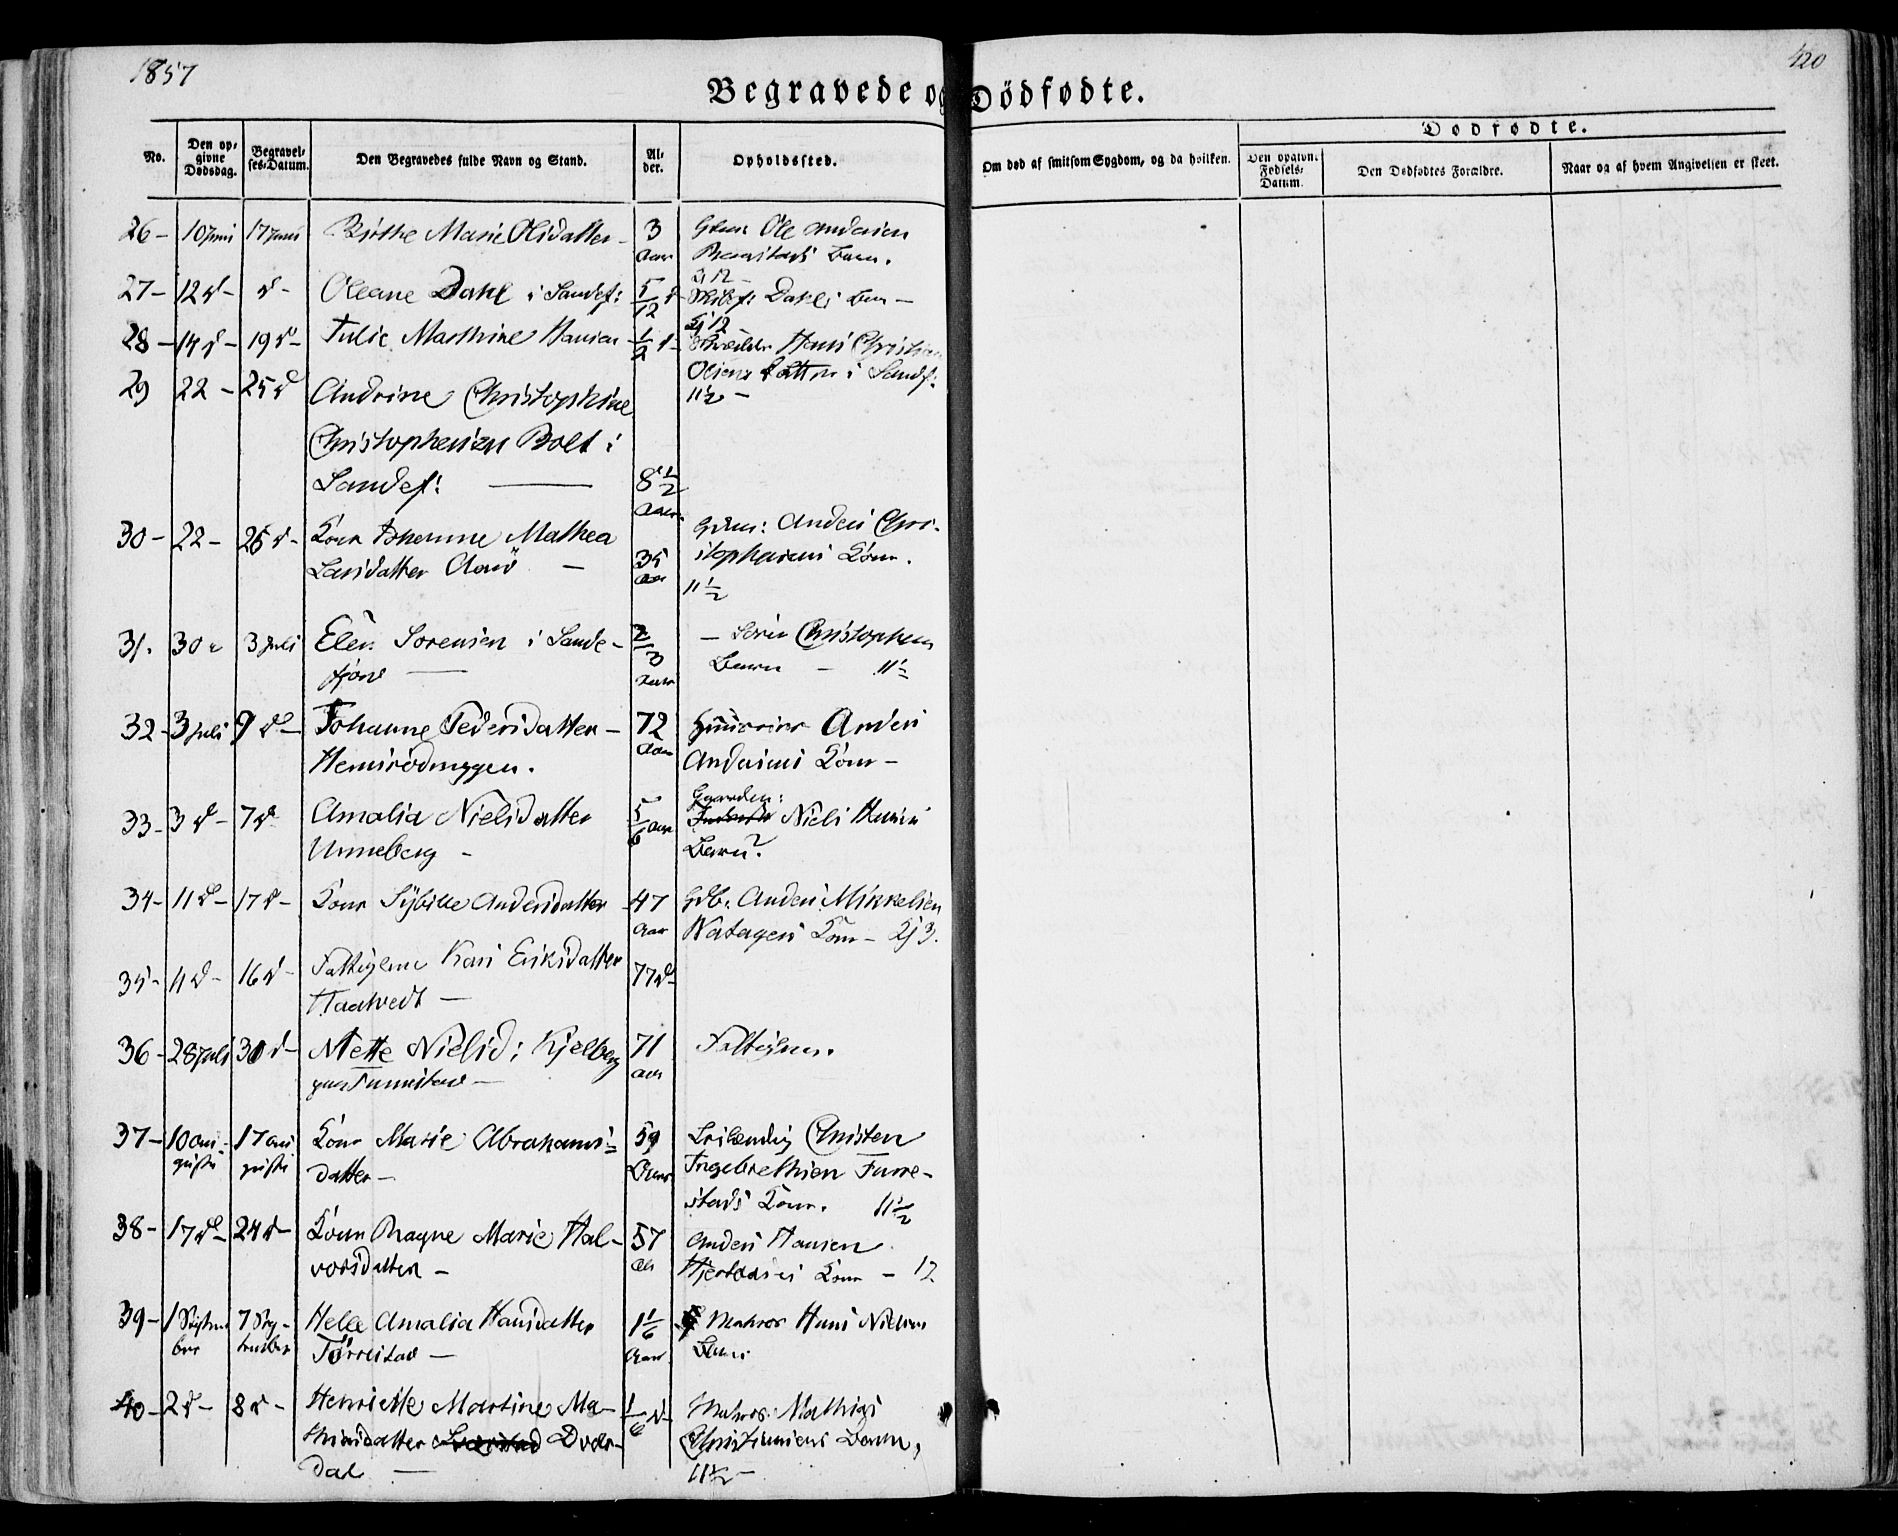 1857
420
Begravede og Dödfødte.
No.
Den opgivne Dødsdag.
Begravelses-Datum.
Den Begravedes fulde Navn og Stand.
Alder.
Opholdssted.
Om død af smitsom Sygdom, og da hvilken.
Dødfødte.
Den opgivn. Fødsels-Datum.
Den Dødfødtes Forældre.
Naar og af hvem Angivelsen er skeet.
26 - 10 Juni 17 Juni Marie Olsdatter - 3 Aar Ole Andersen
Barn.
27 - 12 d - d - Oleane Dahl i Sandef: 5/12 d Dahls Barn -
28 - 14 d - 19 d - Julie Marthine Hansen 1/2 d - Hans Christian
Olsens i Sandf:
11½ -
29 22 - 25 d Andrine Christophine
Christophersen Bolt i
Sandef: 8½ Aar.
30 - 22 - 26 d - Kone Johanne Mathea
Larsdatter - 35 Aar
Gdm: Anders Christophersens Kone.
11½
31. 30 d 3 Juli Elen Sorensen i Sandefjord 2/3 Aar
- Christophersen
Barn - 11½
32 - 3 Juli 9 d - Johanne Pedersdatter - 72 Aar
Anders
Andersens Kone -
33 - 3 d - 7 d Amalia Nielsdatter
Unneberg - 5/6 Aar
Gaardm: Niels Hansens
Barn?
34 - 11 d - 17 d - Kone Sybille Andersdatter - 47 Aar
Gdb. Anders Mikkelsen
Kone - Kj 3.
35 - 11 d - 16 d - Fattiglem Kari Eriksdatter
Haatvedt - 77 d -
36 - 28 Juli 30 d - Mette Nielsd: Kjelberg
71 Aar
Fattiglem.
37 - 10 august 17 august Kone Marie Abrahamsdatter - 59 Aar
Christen
Ingebrethsen Furrestads Kone. 11½
38 - 17 d - 24 d - Kone Ragne Marie Halvorsdatter - 57 Aar
Anders Hansen
Hjertaases Kone - 12
39 - 1 September 7 September Helle Amalia Hansdatter
Tørrestad - 1 1/6 Aar
Matros Hans Nielsens
Barn
40 - 2 d - 8 d - Henriette Martine Mathisdatter
1/6 d - Matros Mathias
Christiansens Barn,
11½ -